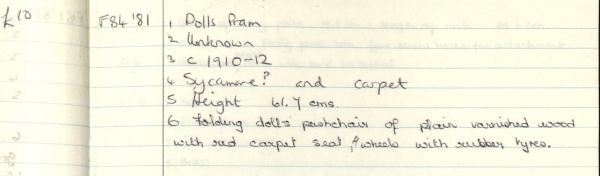 £10 F84'81 1 Dolls Pram
2 Unknown
3 c 1910-12
4 Sycamore? and carpet
5 Height 61.7 cms.
6 Folding dolls' pushchair of plain varnished wood
with red carpet seat, 4 wheels with rubber tyres.